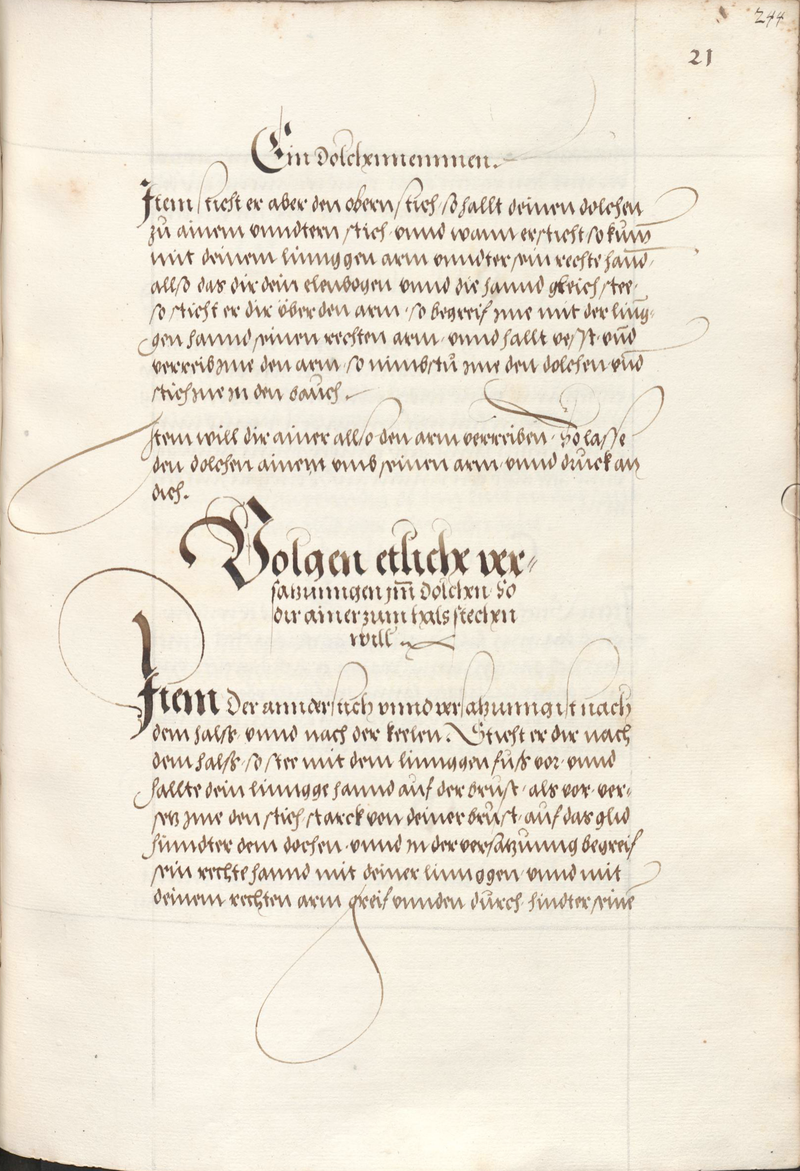 244
21
Ein dolchennemmen.
Item sticht er aber den obern stich so hallt deinen dolchen
zů ainem unndtern stich unnd wann er sticht so kum̄
mit deinem linnggen arm unndter sein rechte hand
allso das dir dein elenbogen unnd die hannd gleich stee
so sticht er dir über den arm so begreif jme mit der ling-
gen hannd seinen rechten arm unnd hallt vesst unnd
verreib jme den arm so nimbstu jme den dolchen unnd
stich jme jn den bauch.
Item will dir ainer allso den arm verreiben So lasse
den dolchen ainem umb seinen arm unnd druck an
dich.
Volgen etliche ver-
satzunngen jm̄ dolchen So
dir ainer zum hals stechen
will
Item Der annder stich unnd versatzunng ist nach
dem halß unnd nach der keelen. Sticht er dir nach
dem halß so stee mit dem linnggen fuß vor unnd
hallte dein linngge hannd auf der brust als vor ver-
setz jme den stich starck von deiner brust auf das glid
hinndter dem dochen unnd jn der versatzunng begreif
sein rechte hannd mit deiner linnggen unnd mit
deinem rechten arm greif unnden durch hindter seine